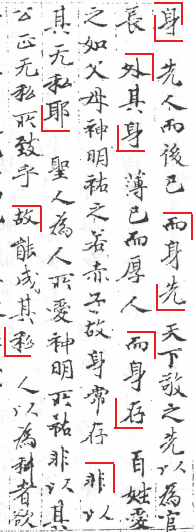 身先人而後己而身先天下敬之先以為官
長外其身薄己而厚人而身存百姓愛
之如父母神明祐之若赤子故身常存非以
其无私耶聖人為人所愛神明所祐非以其
公正无私所致乎故能成其私人以為私者欲